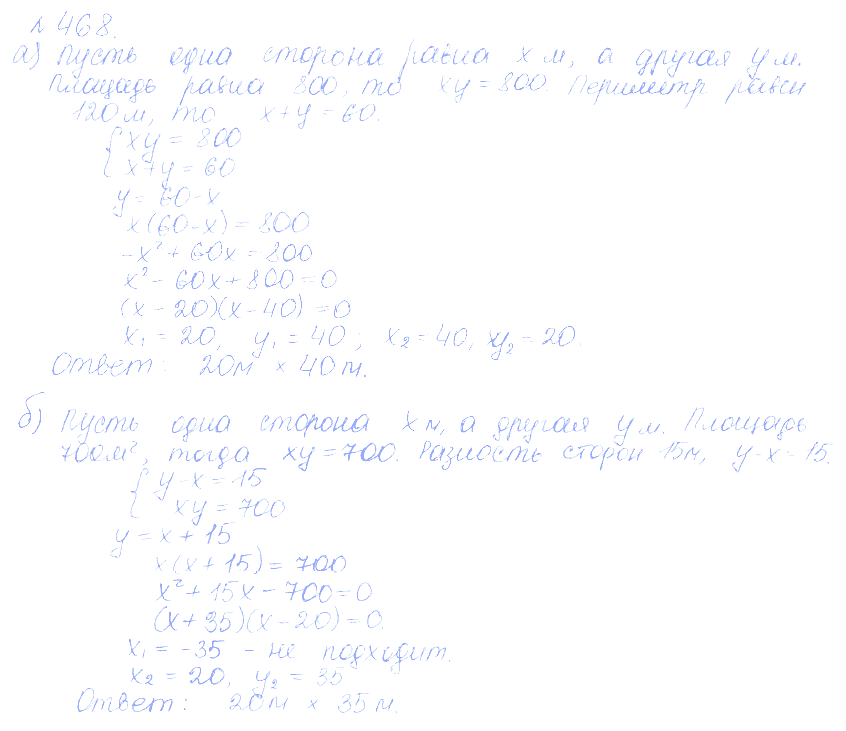 № 468.
а) Пусть одна сторона равна x м, а другая y м.
Площадь равна 800, то xy = 800. Периметр равен
120 м, то x + y = 60.
{ xy = 800
x + y = 60
y = 60 - x
x(60 - x) = 800
-x² + 60x = 800
x² - 60x + 800 = 0
(x - 20)(x - 40) = 0
x₁ = 20, y₁ = 40 ; x₂ = 40, y₂ = 20.
Ответ: 20м × 40 м.
б) Пусть одна сторона x м, а другая y м. Площадь
700м², тогда xy = 700. Разность сторон 15м, y - x = 15.
{ y - x = 15
xy = 700
y = x + 15
x(x + 15) = 700
x² + 15x - 700 = 0
(x + 35)(x - 20) = 0.
x₁ = -35 - не подходит.
x₂ = 20, y₂ = 35
Ответ: 20м × 35 м.